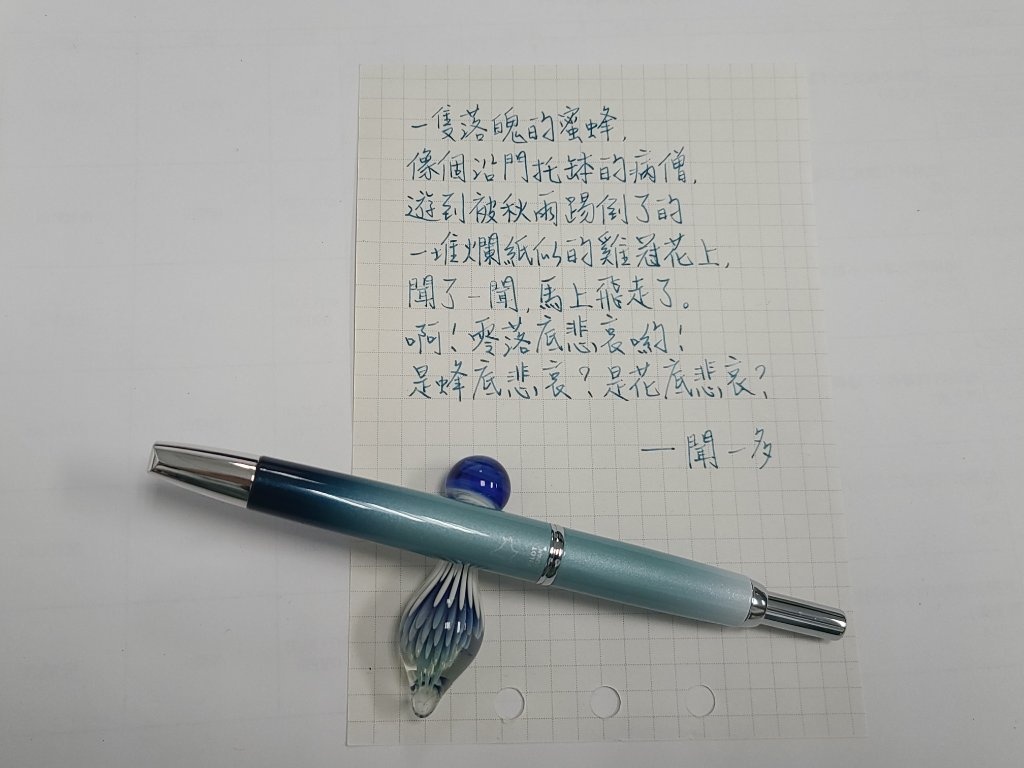 一隻落魄的蜜蜂,
像個沿門托缽的病僧,
遊到被秋雨踢倒了的
一堆爛紙似的雞冠花上,
聞了一聞,馬上飛走了。
啊!零落底悲哀喲!
是蜂底悲哀?是花底悲哀?
一聞一多